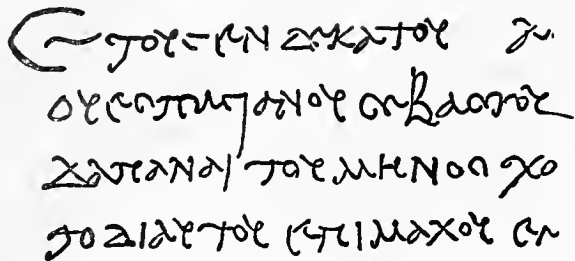 Ετους ενδεκατου αυ
ουεσπασιανου σεβαστου
δαπαναι του μηνος χο
το δι αυτου επιμαχου